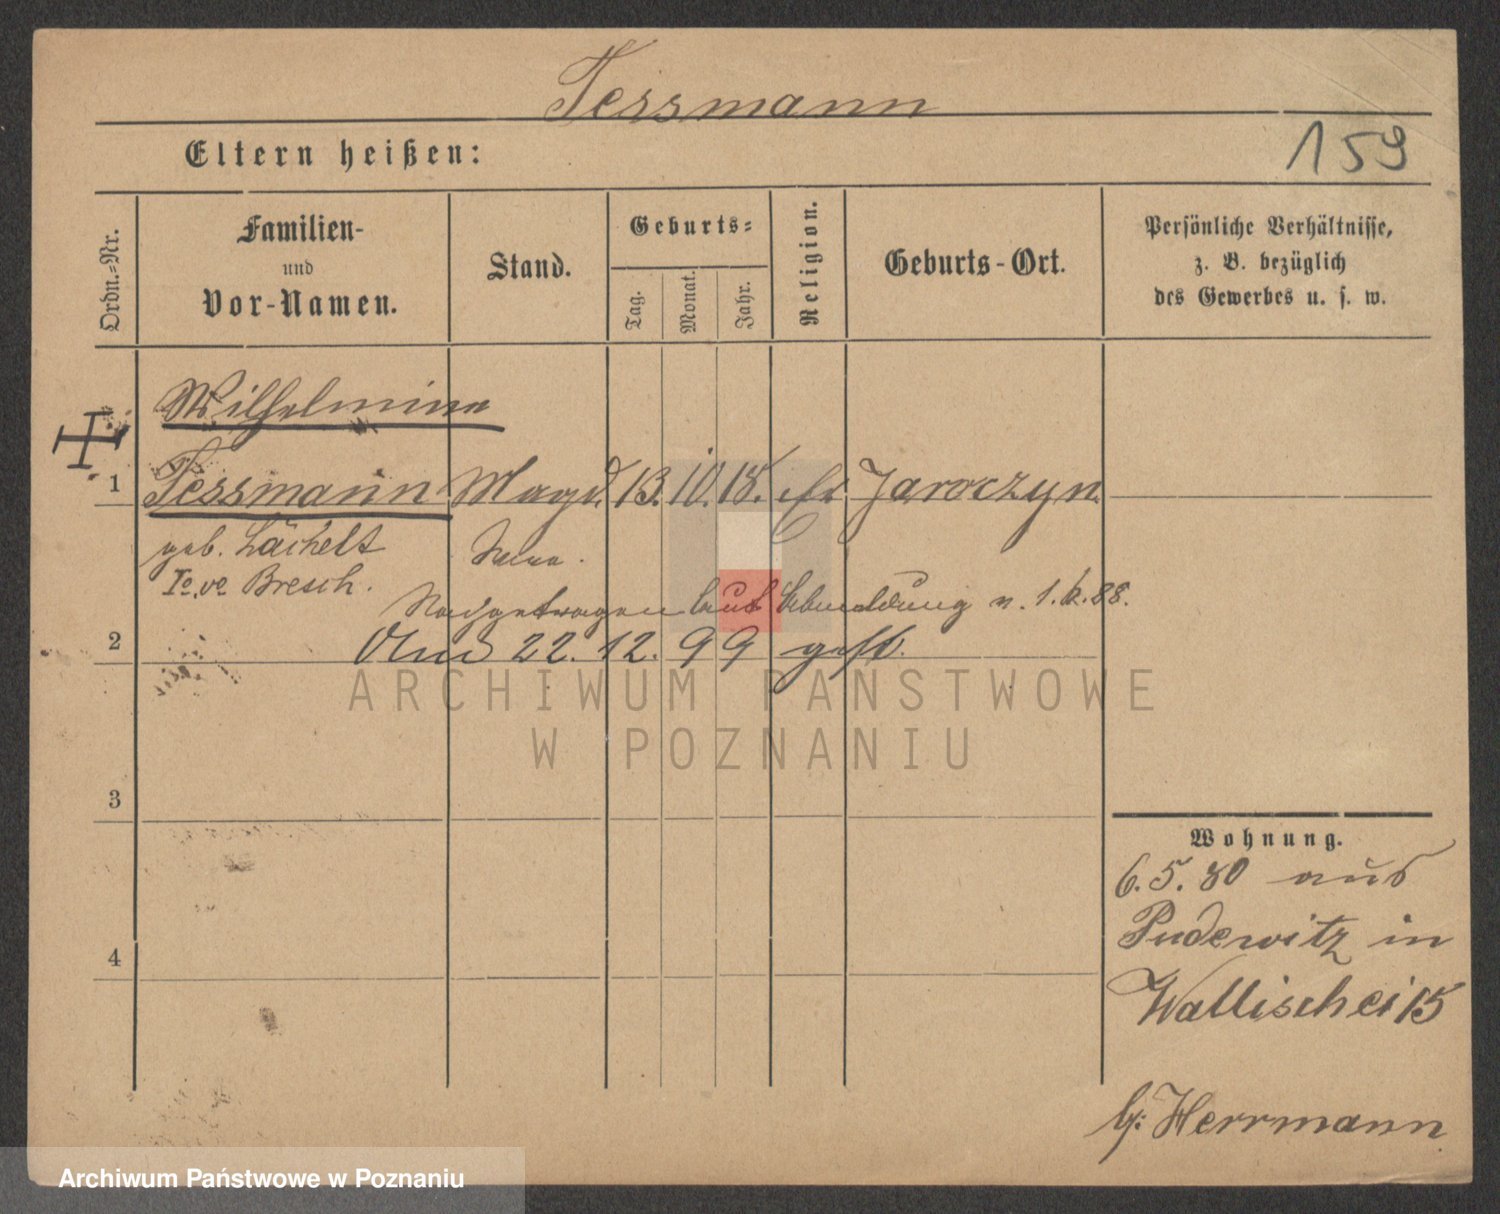 Tessmann
Eltern heißen:
159
Ordn.=Nr.
Familien-
und
Vor-Namen.
Stand.
Geburts=
Tag.
Monat.
Jahr.
Religion.
Geburts-Ort.
Persönliche Verhältnisse,
z. B. bezüglich
des Gewerbes u. s. w.
Wilhelmine
1 Tessmann Magd 13. 10. 18. ev Jaroczyn
geb. Lächelt
Io. vo Bresch.
Nachgetragen laut Abmeldung v. 1. 88.
2
22. 12. 99 gest.
ARCHIWUM PAŃSTWOWE
W POZNANIU
3
Wohnung.
6. 5. 80 aus
Pudewitz in
Wallischei 15
4
b/: Herrmann
Archiwum Państwowe w Poznaniu